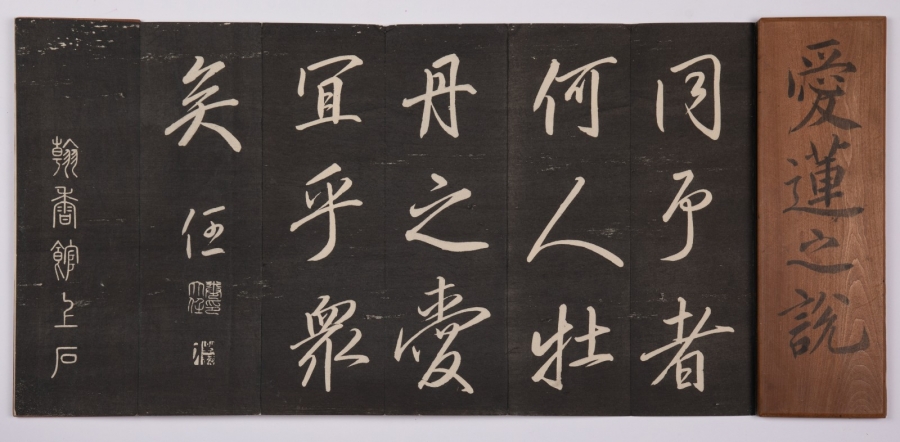 愛蓮之說
同予者
何人牡
丹之愛
宜乎眾
矣 任
翰香館上石